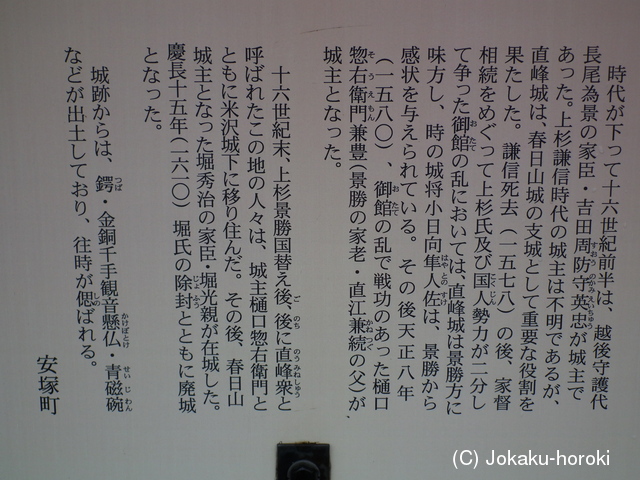 時代が下って十六世紀前半は、越後守護代
長尾為景の家臣・吉田周防守英忠が城主で
あった。上杉謙信時代の城主は不明であるが、
直峰城は、春日山城の支城として重要な役割を
果たした。謙信死去（一五七八）の後、家督
相続をめぐって上杉氏及び国人勢力が二分し
て争った御館の乱においては、直峰城は景勝方に
味方し、時の城将小日向隼人佐は、景勝から
感状を与えられている。その後天正八年
（一五八〇）、御館の乱で戦功のあった樋口
惣右衛門兼豊（景勝の家老・直江兼続の父）が
城主となった。
十六世紀末、上杉景勝国替え後、後に直峰衆と
呼ばれたこの地の人々は、城主樋口惣右衛門と
ともに米沢城下に移り住んだ。その後、春日山
城主となった堀秀治の家臣・堀光親が在城した。
慶長十五年（一六一〇）堀氏の除封とともに廃城
となった。
城跡からは、鍔・金銅千手観音懸仏・青磁碗
などが出土しており、往時が偲ばれる。
安塚町
(C) Jokaku-horoki